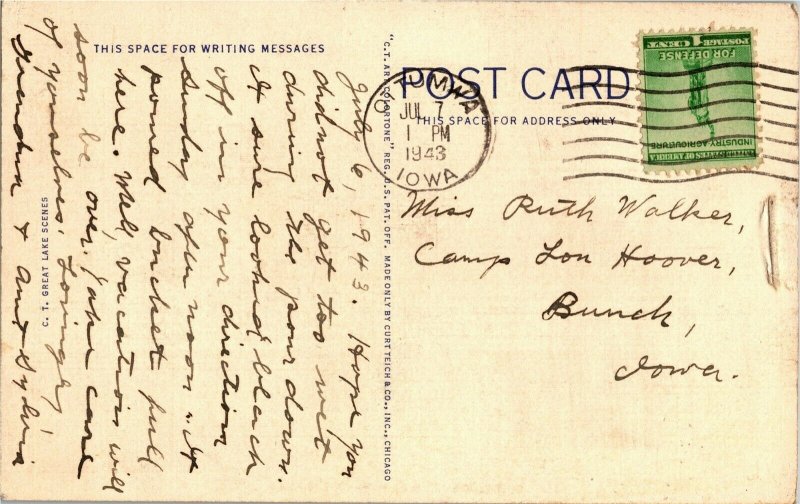 THIS SPACE FOR WRITING MESSAGES
July 6, 1943. Hope you
did not get too wet
during the pour down.
It sure looked black
off in your direction
Sunday afternoon. It
poured bucket full
here. Well vacation will
soon be over. Take care
of yourselves. Lovingly
Grandma & Aunt Sylvia
C. T. GREAT LAKE SCENES
"C.T. ART-COLORTONE" REG. U.S. PAT. OFF. MADE ONLY BY CURT TEICH & CO., INC., CHICAGO
POST CARD
THIS SPACE FOR ADDRESS ONLY
OTTUMWA
JUL 7
1 PM
1943
IOWA
UNITED STATES OF AMERICA
INDUSTRY AGRICULTURE
FOR DEFENSE
POSTAGE 1 CENT
Miss Ruth Walker,
Camp Lou Hoover,
Bunch,
Iowa.